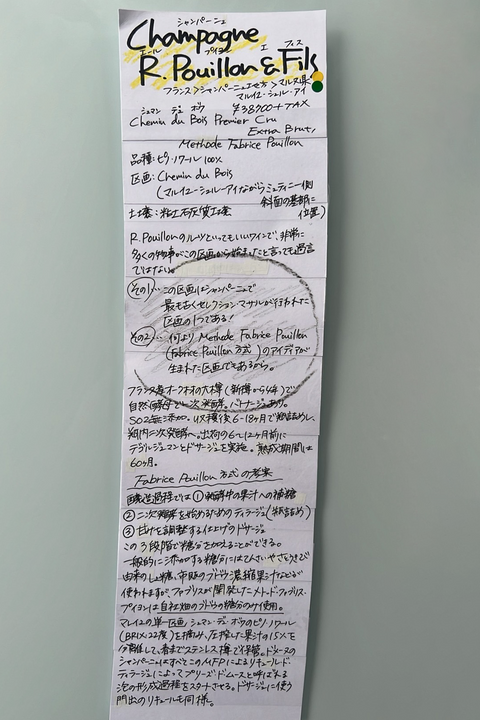 シャンパーニュ
Champagne
エール プイヨン エ フィス
R. Pouillon & Fils
フランス>シャンパーニュ地方>マルヌ県
マルイユ・シュル・アイ
シュマン デュ ボワ ¥38900+TAX
Chemin du Bois Premier Cru
Extra Brut,
Methode Fabrice Pouillon
品種:ピノ・ノワール 100%
区画:Chemin du Bois
(マルイユ・シュル・アイながらミュティニー側
斜面の基部に
位置)
土壌:粘土石灰質土壌
R.Pouillonのルーツといってもいいワインで、非常に
多くの物事がこの区画から始まったと言っても過言
ではない。
その1)…この区画はシャンパーニュで
最も古くセレクション・マサルが行われた
区画の1つである!
その2)…何より Methode Fabrice Pouillon
(Fabrice Pouillon 方式)のアイディアが
生まれた区画でもあるから。
フランス産オークの大樽(新樽から4年)で
自然酵母で一次発酵。バトナージュあり。
SO2無添加。収穫後6-18ヶ月で瓶詰めし、
瓶内二次発酵へ。出荷の6~12ヶ月前に
デゴルジュマンとドサージュを実施。熟成期間は
60ヶ月。
Fabrice Pouillon 方式の考案
醸造過程では①発酵中の果汁への補糖
②二次発酵を始めるためのティラージュ(瓶詰め)
③甘さを調整する仕上げのドサージュ
この3段階で糖分を加えることができる。
一般的に添加する糖分にはてんさいやさとうきび
由来のしょ糖、市販のブドウ濃縮果汁などが
使われますが、ファブリスが開発したメトード・ファブリス・
プイヨンは自社畑のブドウの糖分のみ使用。
マルイユの単一区画シュマン・デュ・ボワのピノ・ノワール
(BRIX22度)を摘み、圧搾した果汁の15%を
春までステンレス樽で保管。ドメーヌの
シャンパーニュはすべてこのMFPによりリキュール・ド・
ティラージュによってプリーズ・ド・ムースと呼ばれる
泡の形成過程をスタートさせる。ドサージュに使う
門出のリキュールも同様。